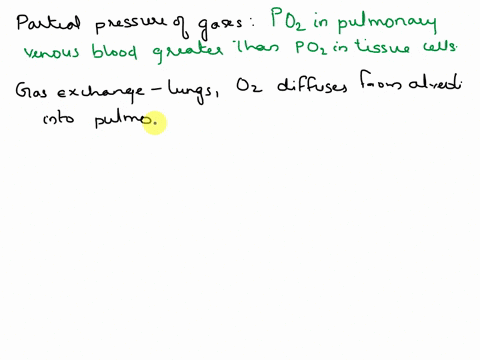 Partial pressure of gases: PO2 in pulmonary
venous blood greater than PO2 in tissue cells.
Gas exchange - lungs, O2 diffuses from alveoli
into pulmo